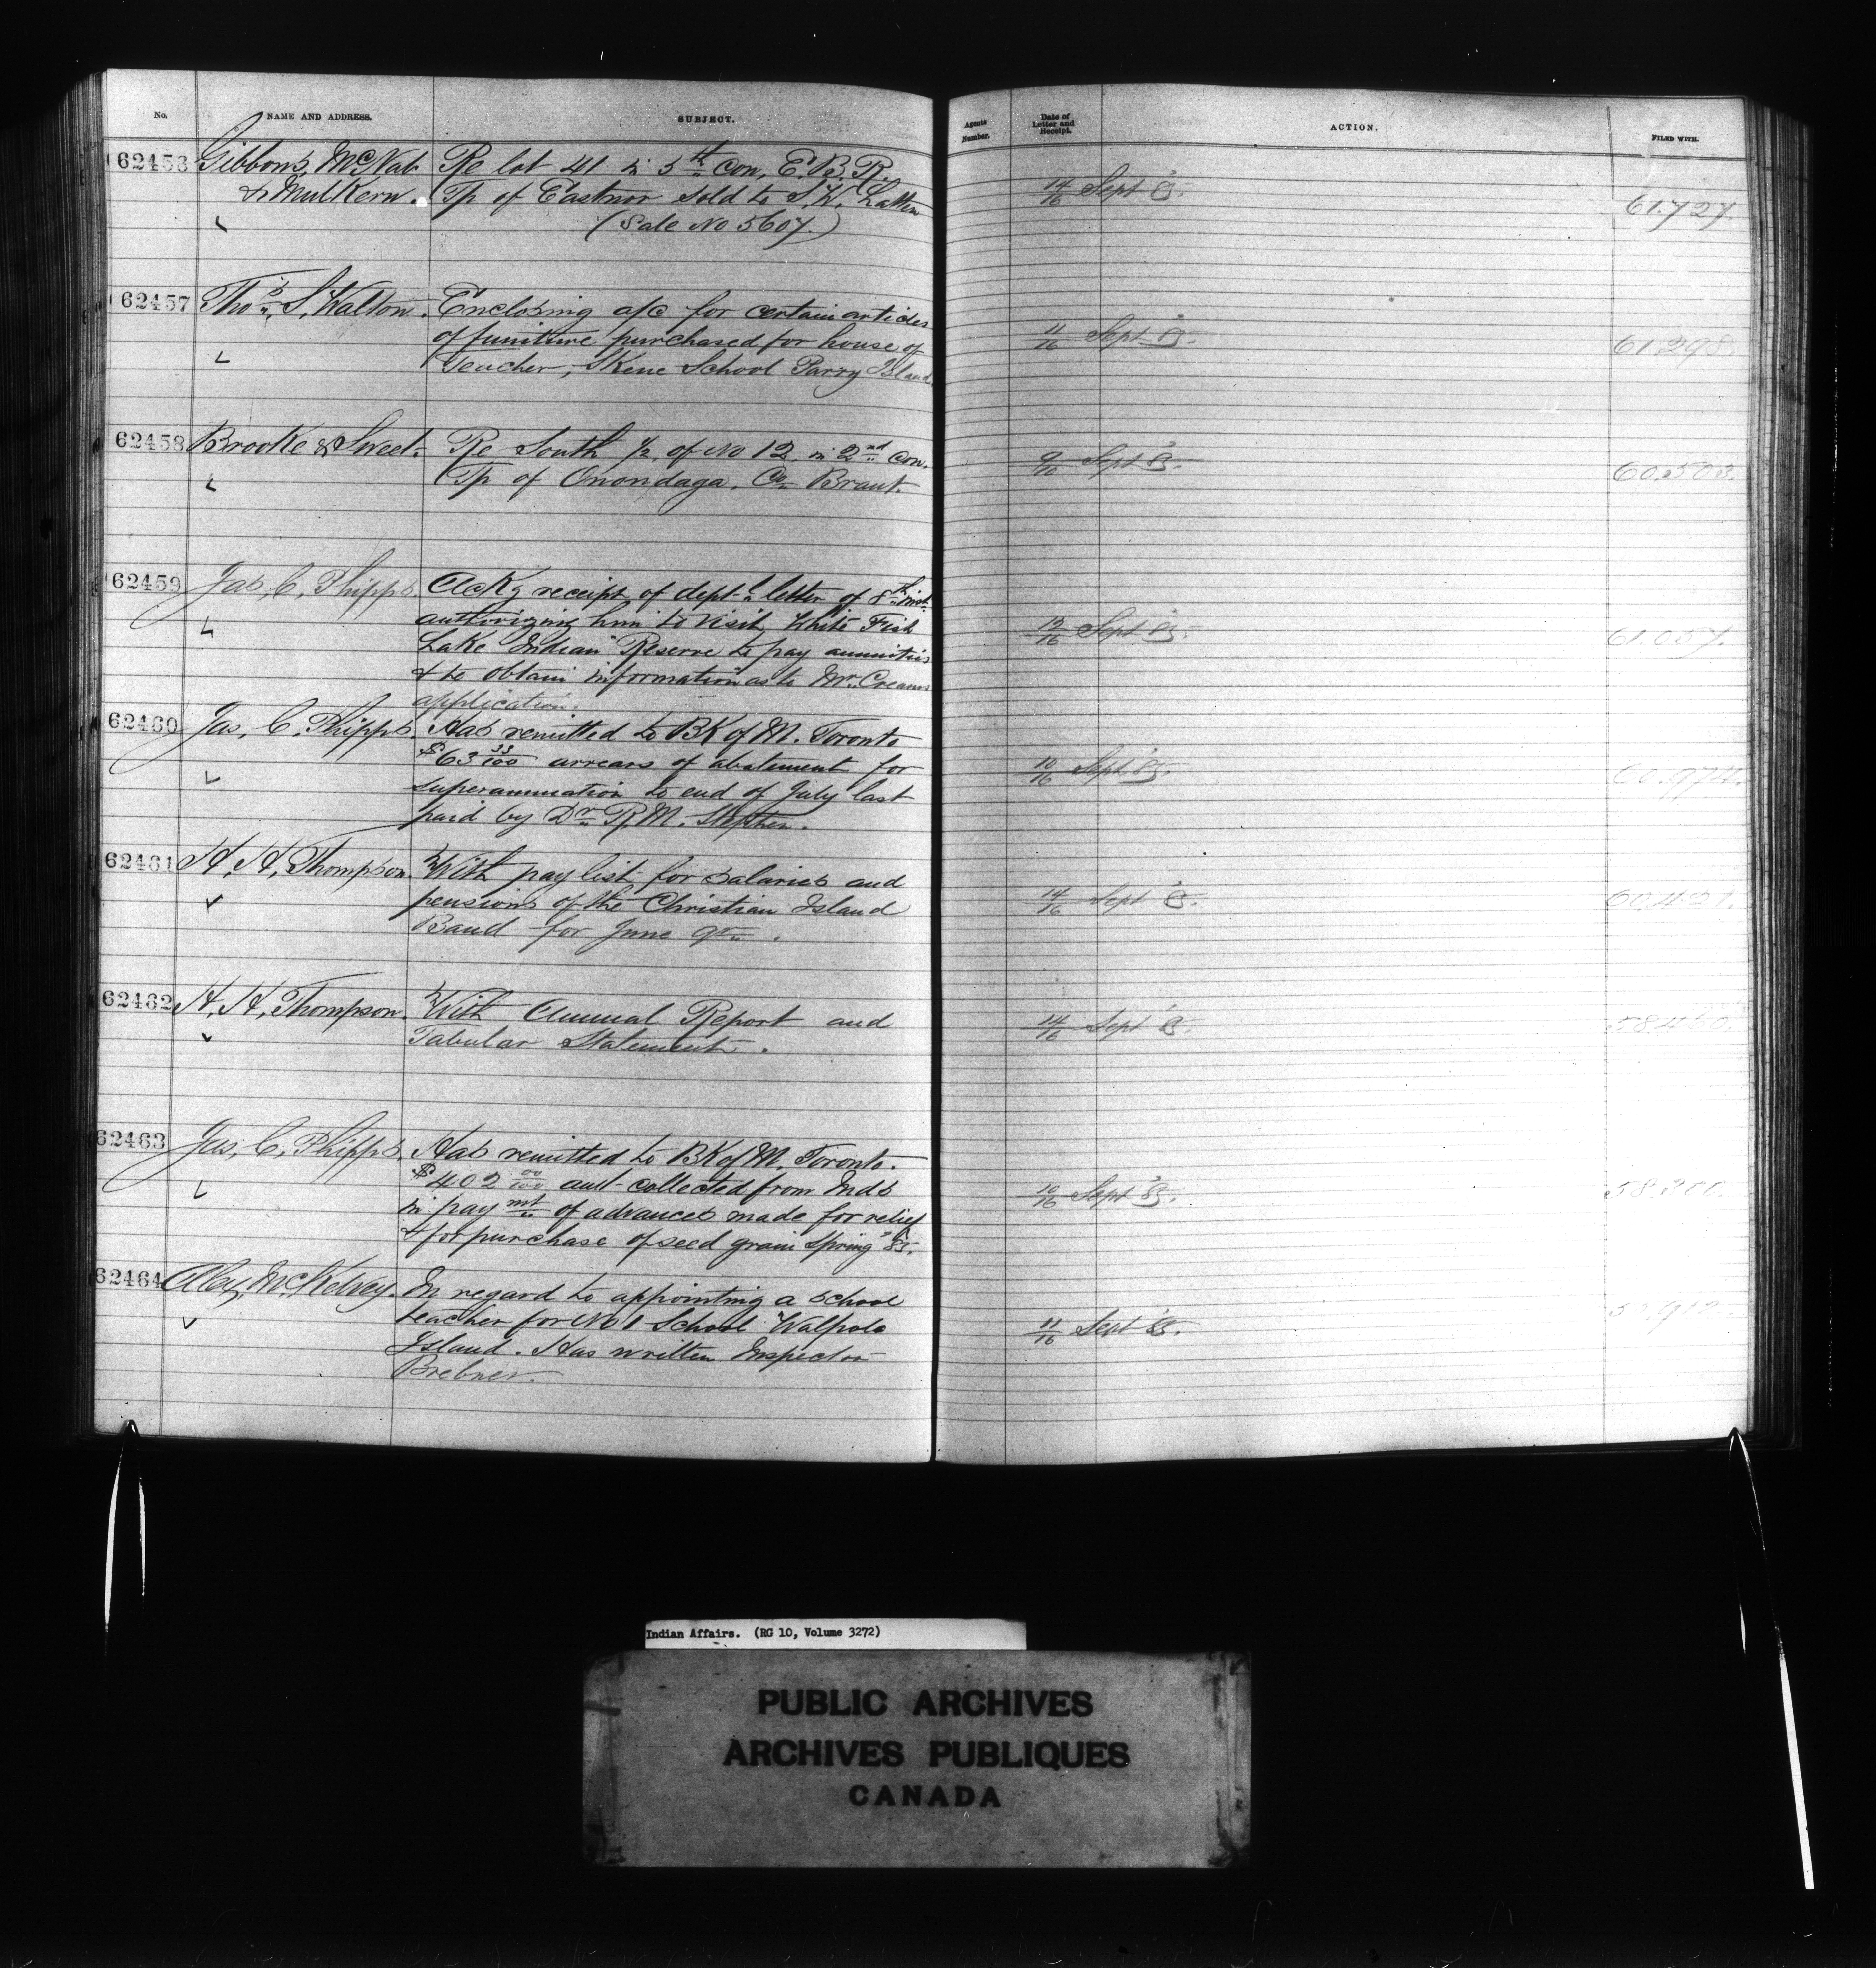 No.
NAME AND ADDRESS.
SUBJECT.
Agents Number.
Date of Letter and Receipt.
ACTION.
FILED WITH.
62456 Gibbons, McNab Re lot 41 in 5th con, E.B.R.
& Mulkern. Tp of Eastnor sold to S.W.
(Sale No 5607.)
14/16 Sept 85. 61.727.
62457 Thos. S. Walton. Enclosing a/c for certain articles
of funiture purchased for house of
Teacher, Skene School Parry Island
11/16 Sept 85. 61298.
62458 Brooke & Sweet. Re South ½ of No 12 in 2nd con.
Tp of Onondaga, Co. Brant.
9/10 Sept 85. 60.503.
62459 Jas, C, Phipps. Ackg receipt of dept-l letter of 8th inst
authorizing him to visit White Fish
Lake Indian Reserve to pay annuities
& to obtain information as to Mr. Creams
application.
12/16 Sept 85. 61.057.
62460 Jas, C, Phipps Has remitted to BK of M. Toronto
$63 33/100 arrears of abatement for
superannuation to end of July last
paid by Dr. R.M. Stephen.
10/16 Sept 85. 60.974.
62461 H, H, Thompson. With pay list for salaries and
pensions of the Christian Island
Band for June qr.
14/16 Sept 85.
62462 H, H, Thompson. With Annual Report and
Tabular Statement.
14/16 Sept 85. 58.460.
62463 Jas, C, Phipps. Has remitted to BK of M. Toronto.
$402 00/100 amt collected from Inds
in paymt of advances made for relief
& for purchase of seed grain Spring '85.
10/16 Sept '85. 58.300.
62464 Alex, McKelvey. In regard to appointing a school
teacher for No 1 School Walpole
Island. Has written Inspector
Brebner.
11/16 Sept 85.
Indian Affairs. (RG 10, Volume 3272)
PUBLIC ARCHIVES
ARCHIVES PUBLIQUES
CANADA